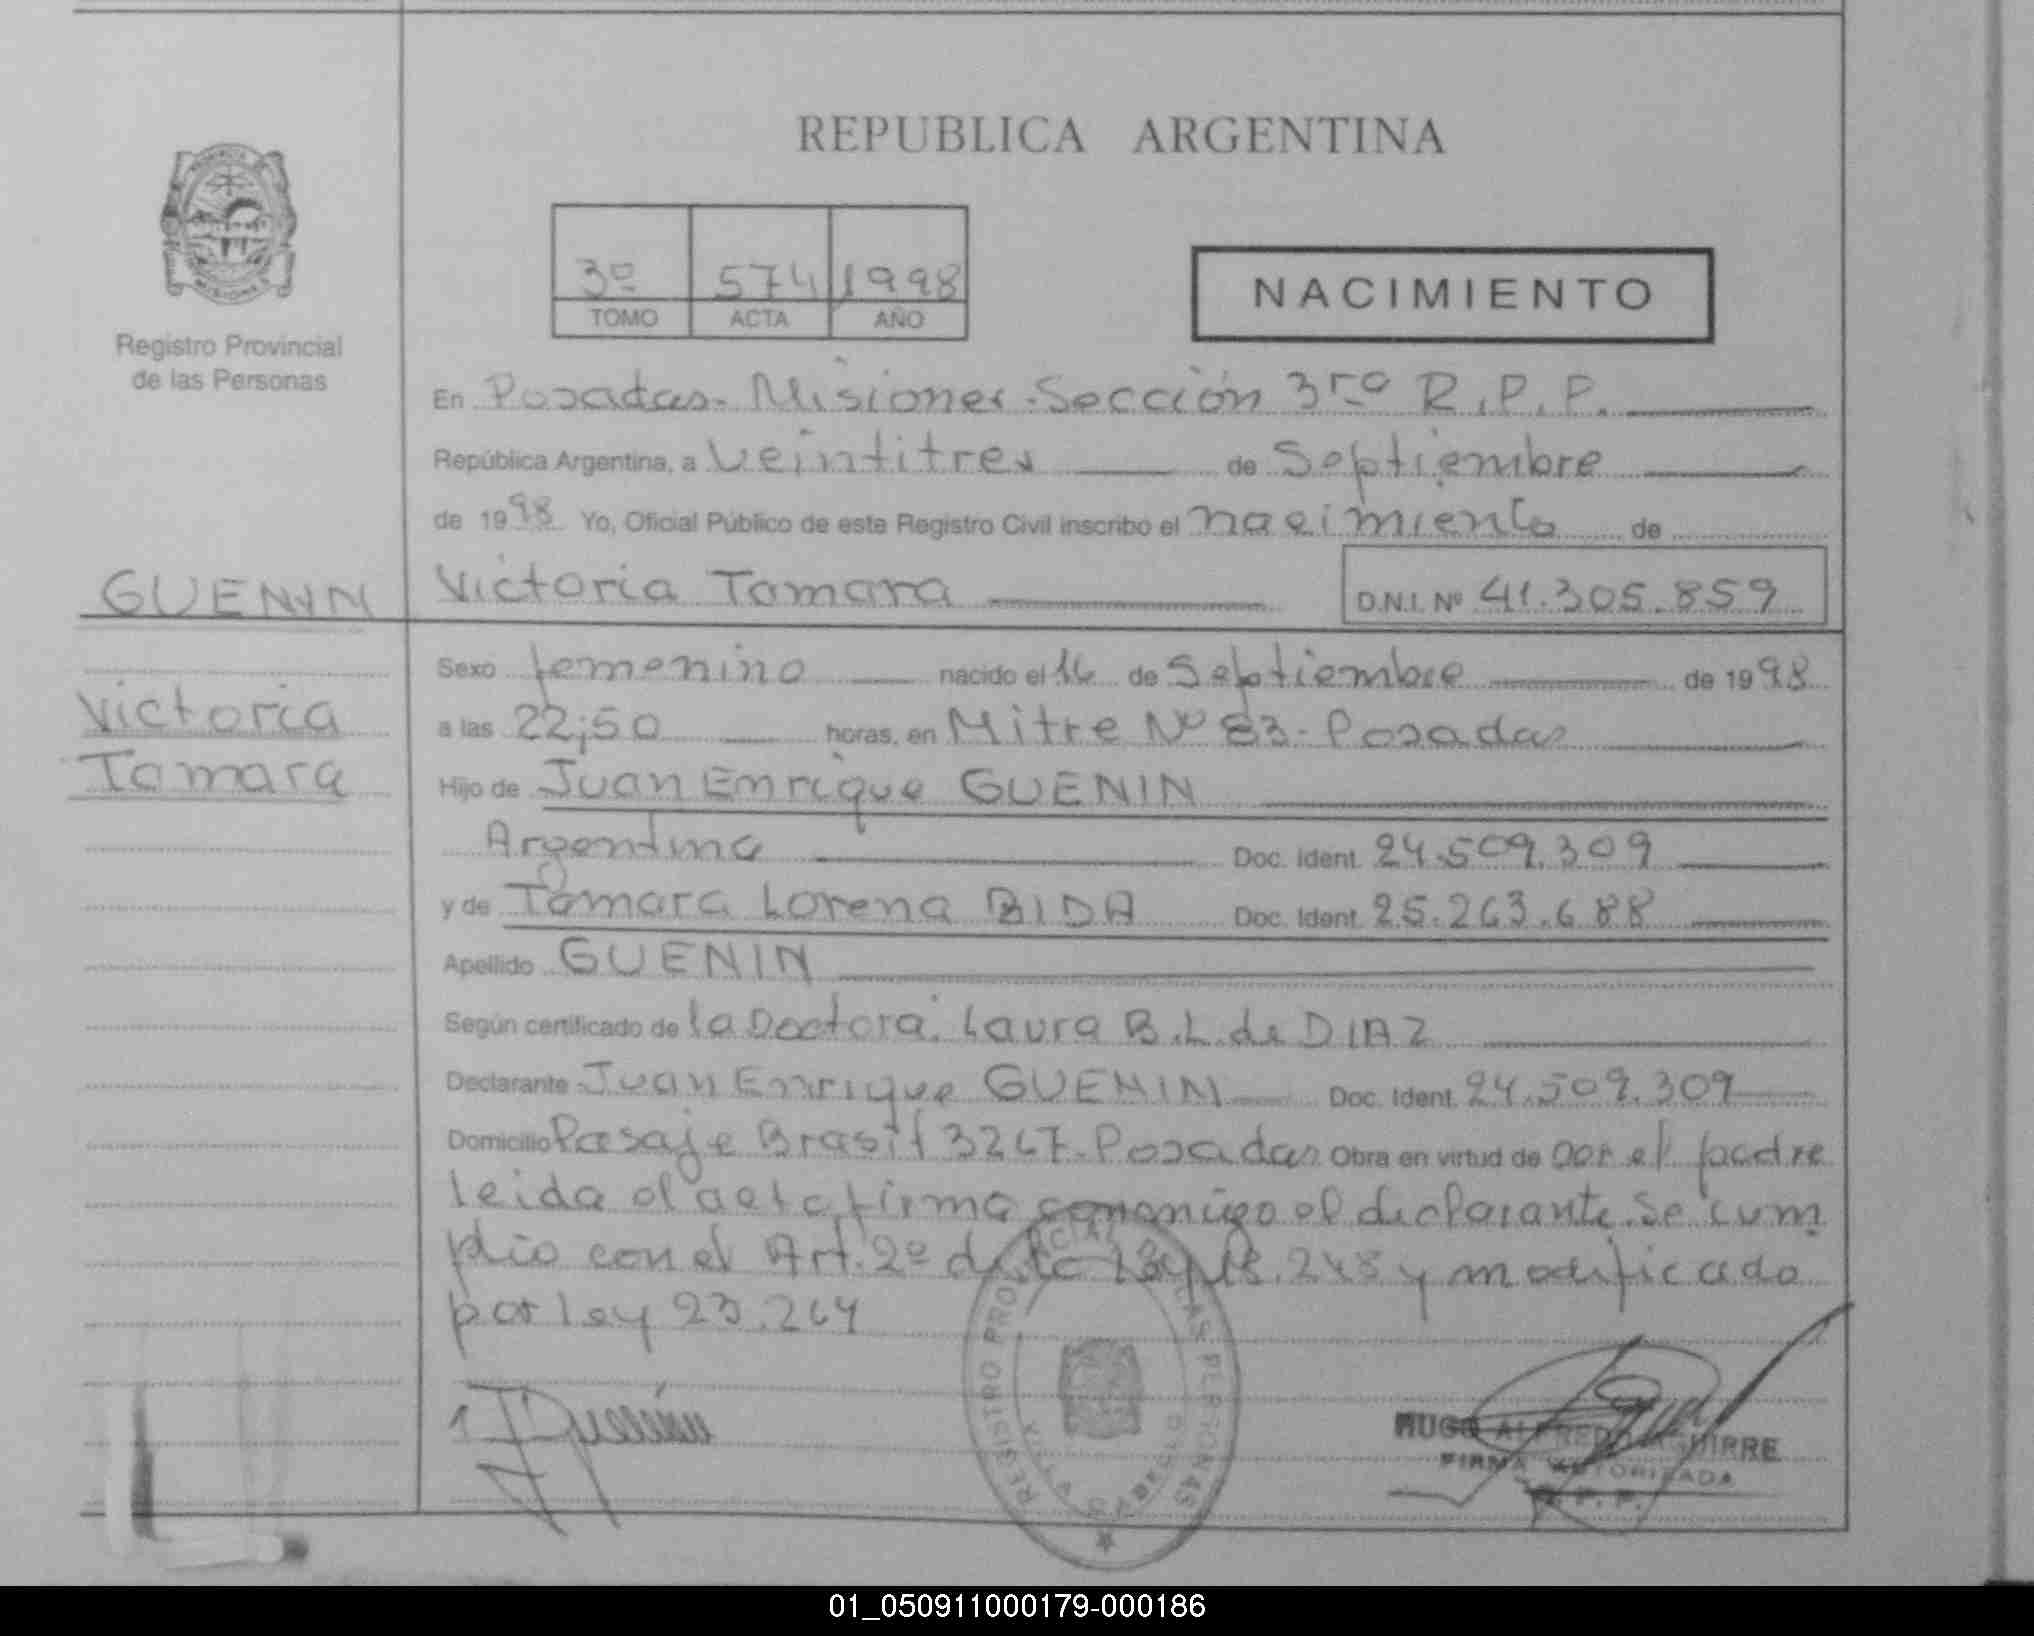 REPUBLICA ARGENTINA
3º 574 1998
TOMO ACTA AÑO
NACIMIENTO
Registro Provincial
de las Personas
En Posadas - Misiones - Sección 3ra R.P.P.
República Argentina, a veintitres de Septiembre
de 1998 Yo, Oficial Público de este Registro Civil inscribo el nacimiento de
GUENIN
Victoria Tamara
D.N.I. Nº 41.305.859
Sexo femenino nacido el 16 de Septiembre de 1998
Victoria
Tamara
a las 22;50 horas, en Mitre Nº 83 - Posadas
Hijo de Juan Enrique GUENIN
Argentina Doc. Ident. 24.509.309
y de Tamara Lorena BIDA Doc. Ident. 25.263.688
Apellido GUENIN
Según certificado de la Doctora: Laura B.L. de DIAZ
Declarante Juan Enrique GUENIN Doc. Ident. 24.509.309
Domicilio Pasaje Brasil 3267 - Posadas Obra en virtud de por el padre
leida el acta firma conmigo el declarante. Se cum
plio con el Art. 2º de la Ley 18.248 y modificado
por ley 23.264
REGISTRO PROVINCIAL DE LAS PERSONAS
HUGO ALFREDO AGUIRRE
FIRMA AUTORIZADA
R.P.P.
01_050911000179-000186